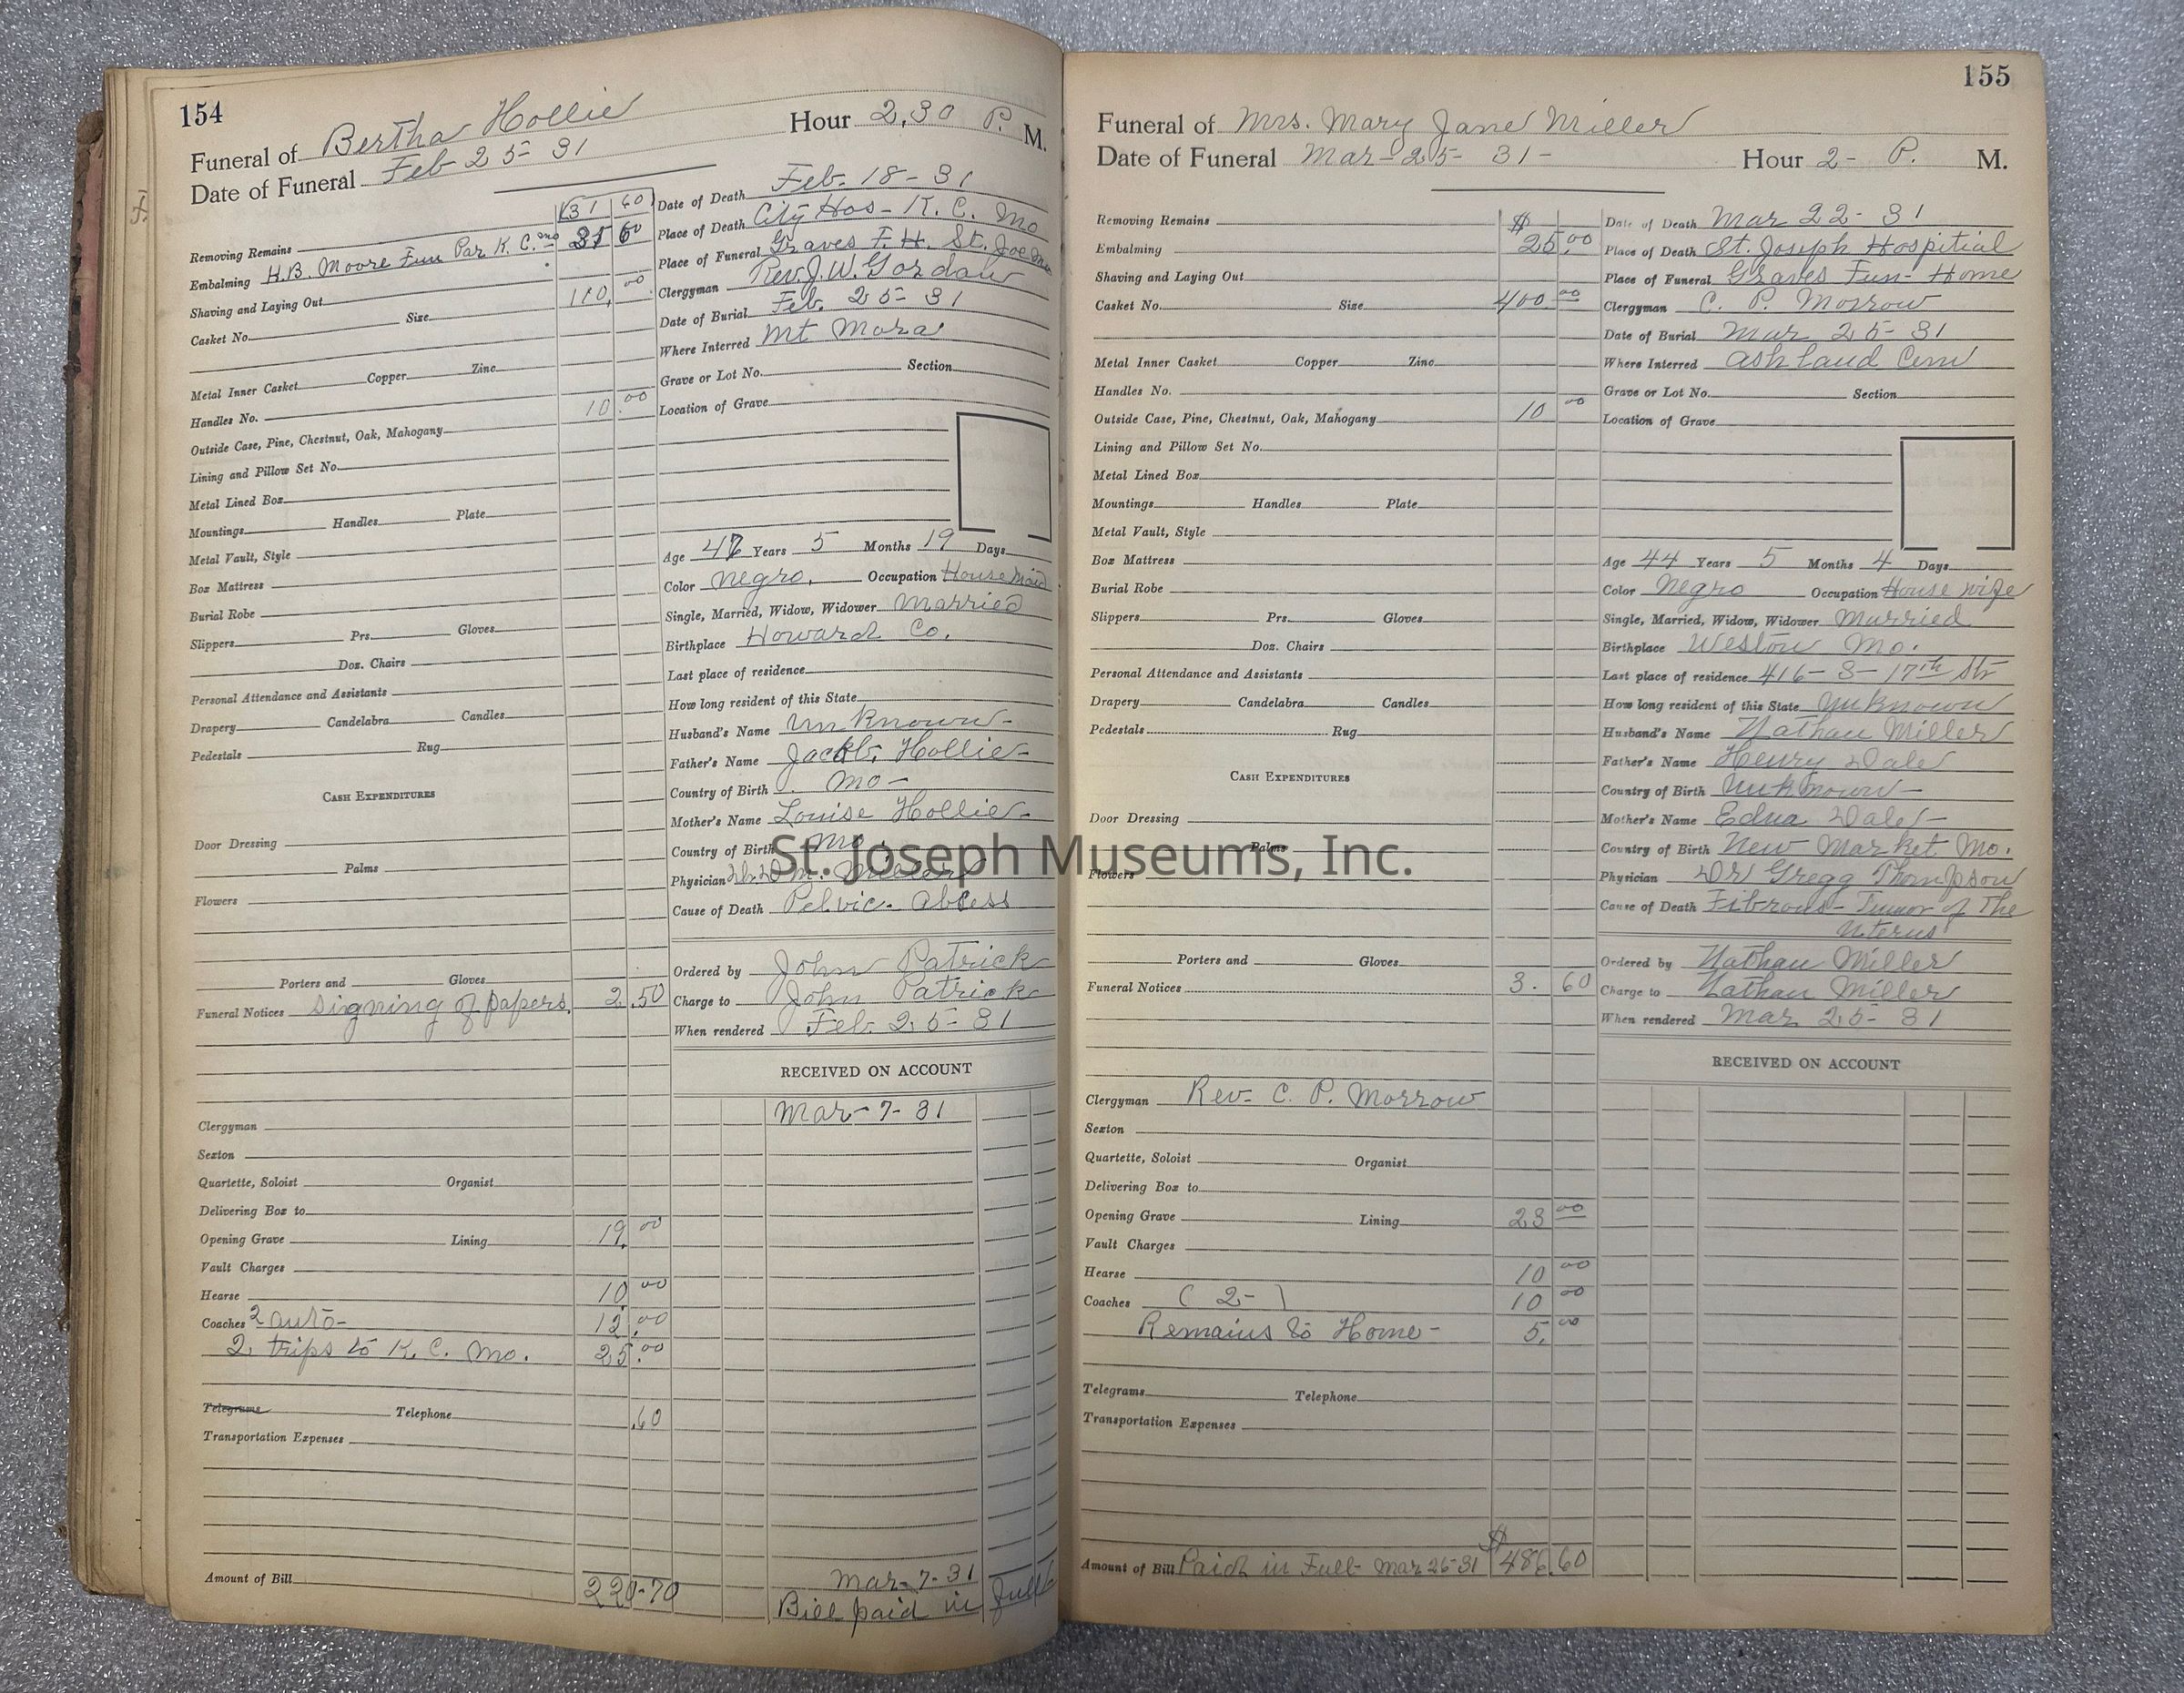 154
Funeral of Bertha Hollie
Date of Funeral Feb 25-31 Hour 2,30 P. M.
31 60
Removing Remains
Embalming H.B. Moore Fun Par K.C. Mo 31 60
Shaving and Laying Out
Casket No. Size 110, 00
Metal Inner Casket Copper Zinc
Handles No.
Outside Case, Pine, Chestnut, Oak, Mahogany 10.00
Lining and Pillow Set No.
Metal Lined Box
Mountings Handles Plate
Metal Vault, Style
Box Mattress
Burial Robe
Slippers Prs. Gloves
Doz. Chairs
Personal Attendance and Assistants
Drapery Candelabra Candles
Pedestals Rug
CASH EXPENDITURES
Door Dressing
Palms
Flowers
Porters and Gloves
Funeral Notices signing of papers. 2.50
Clergyman
Sexton
Quartette, Soloist Organist
Delivering Box to
Opening Grave Lining 19.00
Vault Charges
Hearse 10.00
Coaches 2 auto- 12.00
2 trips to K. C. Mo. 25.00
Telegrams Telephone .60
Transportation Expenses
Amount of Bill 220-70
Date of Death Feb. 18-31
Place of Death City Hos- K. C. Mo
Place of Funeral Graves F. H. St. Joe Mo
Clergyman Rev. J. W. Gordan
Date of Burial Feb. 25-31
Where Interred Mt Mora
Grave or Lot No. Section
Location of Grave
Age 47 Years 5 Months 19 Days
Color Negro. Occupation House Maid
Single, Married, Widow, Widower Married
Birthplace Howard Co.
Last place of residence
How long resident of this State
Husband's Name Unknown-
Father's Name Hollie-
Country of Birth Mo-
Mother's Name Louise Hollie-
Country of Birth Mo.
Physician
Cause of Death Pelvic- Abcess
Ordered by John Patrick
Charge to John Patrick
When rendered Feb. 25-31
RECEIVED ON ACCOUNT
Mar-7-31
Mar-7-31
Bill paid in full
155
Funeral of Mrs. Mary Jane Miller
Date of Funeral Mar-25-31- Hour 2- P. M.
Removing Remains $
Embalming 25.00
Shaving and Laying Out
Casket No. Size 400.00
Metal Inner Casket Copper Zinc
Handles No.
Outside Case, Pine, Chestnut, Oak, Mahogany 10 00
Lining and Pillow Set No.
Metal Lined Box
Mountings Handles Plate
Metal Vault, Style
Box Mattress
Burial Robe
Slippers Prs. Gloves
Doz. Chairs
Personal Attendance and Assistants
Drapery Candelabra Candles
Pedestals Rug
CASH EXPENDITURES
Door Dressing
Palms
Flowers
Porters and Gloves
Funeral Notices 3. 60
Clergyman Rev- C. P. Morrow
Sexton
Quartette, Soloist Organist
Delivering Box to
Opening Grave Lining 23 00
Vault Charges
Hearse 10 00
Coaches (2-) 10 00
Remains to Home- 5. 00
Telegrams Telephone
Transportation Expenses
Amount of Bill Paid in Full- Mar 26-31 $486.60
Date of Death Mar 22-31
Place of Death St. Joseph Hospitial
Place of Funeral Graves Fun- Home
Clergyman C. P. Morrow
Date of Burial Mar 25-31
Where Interred Ashland Cem
Grave or Lot No. Section
Location of Grave
Age 44 Years 5 Months 4 Days
Color Negro Occupation House wife
Single, Married, Widow, Widower Married
Birthplace Weston Mo.
Last place of residence 416-S-17th Str
How long resident of this State Unknown
Husband's Name Nathan Miller
Father's Name Henry Dale
Country of Birth Unknown-
Mother's Name Edna Dale-
Country of Birth New Market Mo.
Physician Dr Gregg Thompson
Cause of Death Fibrous- Tumor of The
Uterus
Ordered by Nathan Miller
Charge to Nathan Miller
When rendered Mar 25-31
RECEIVED ON ACCOUNT
St. Joseph Museums, Inc.